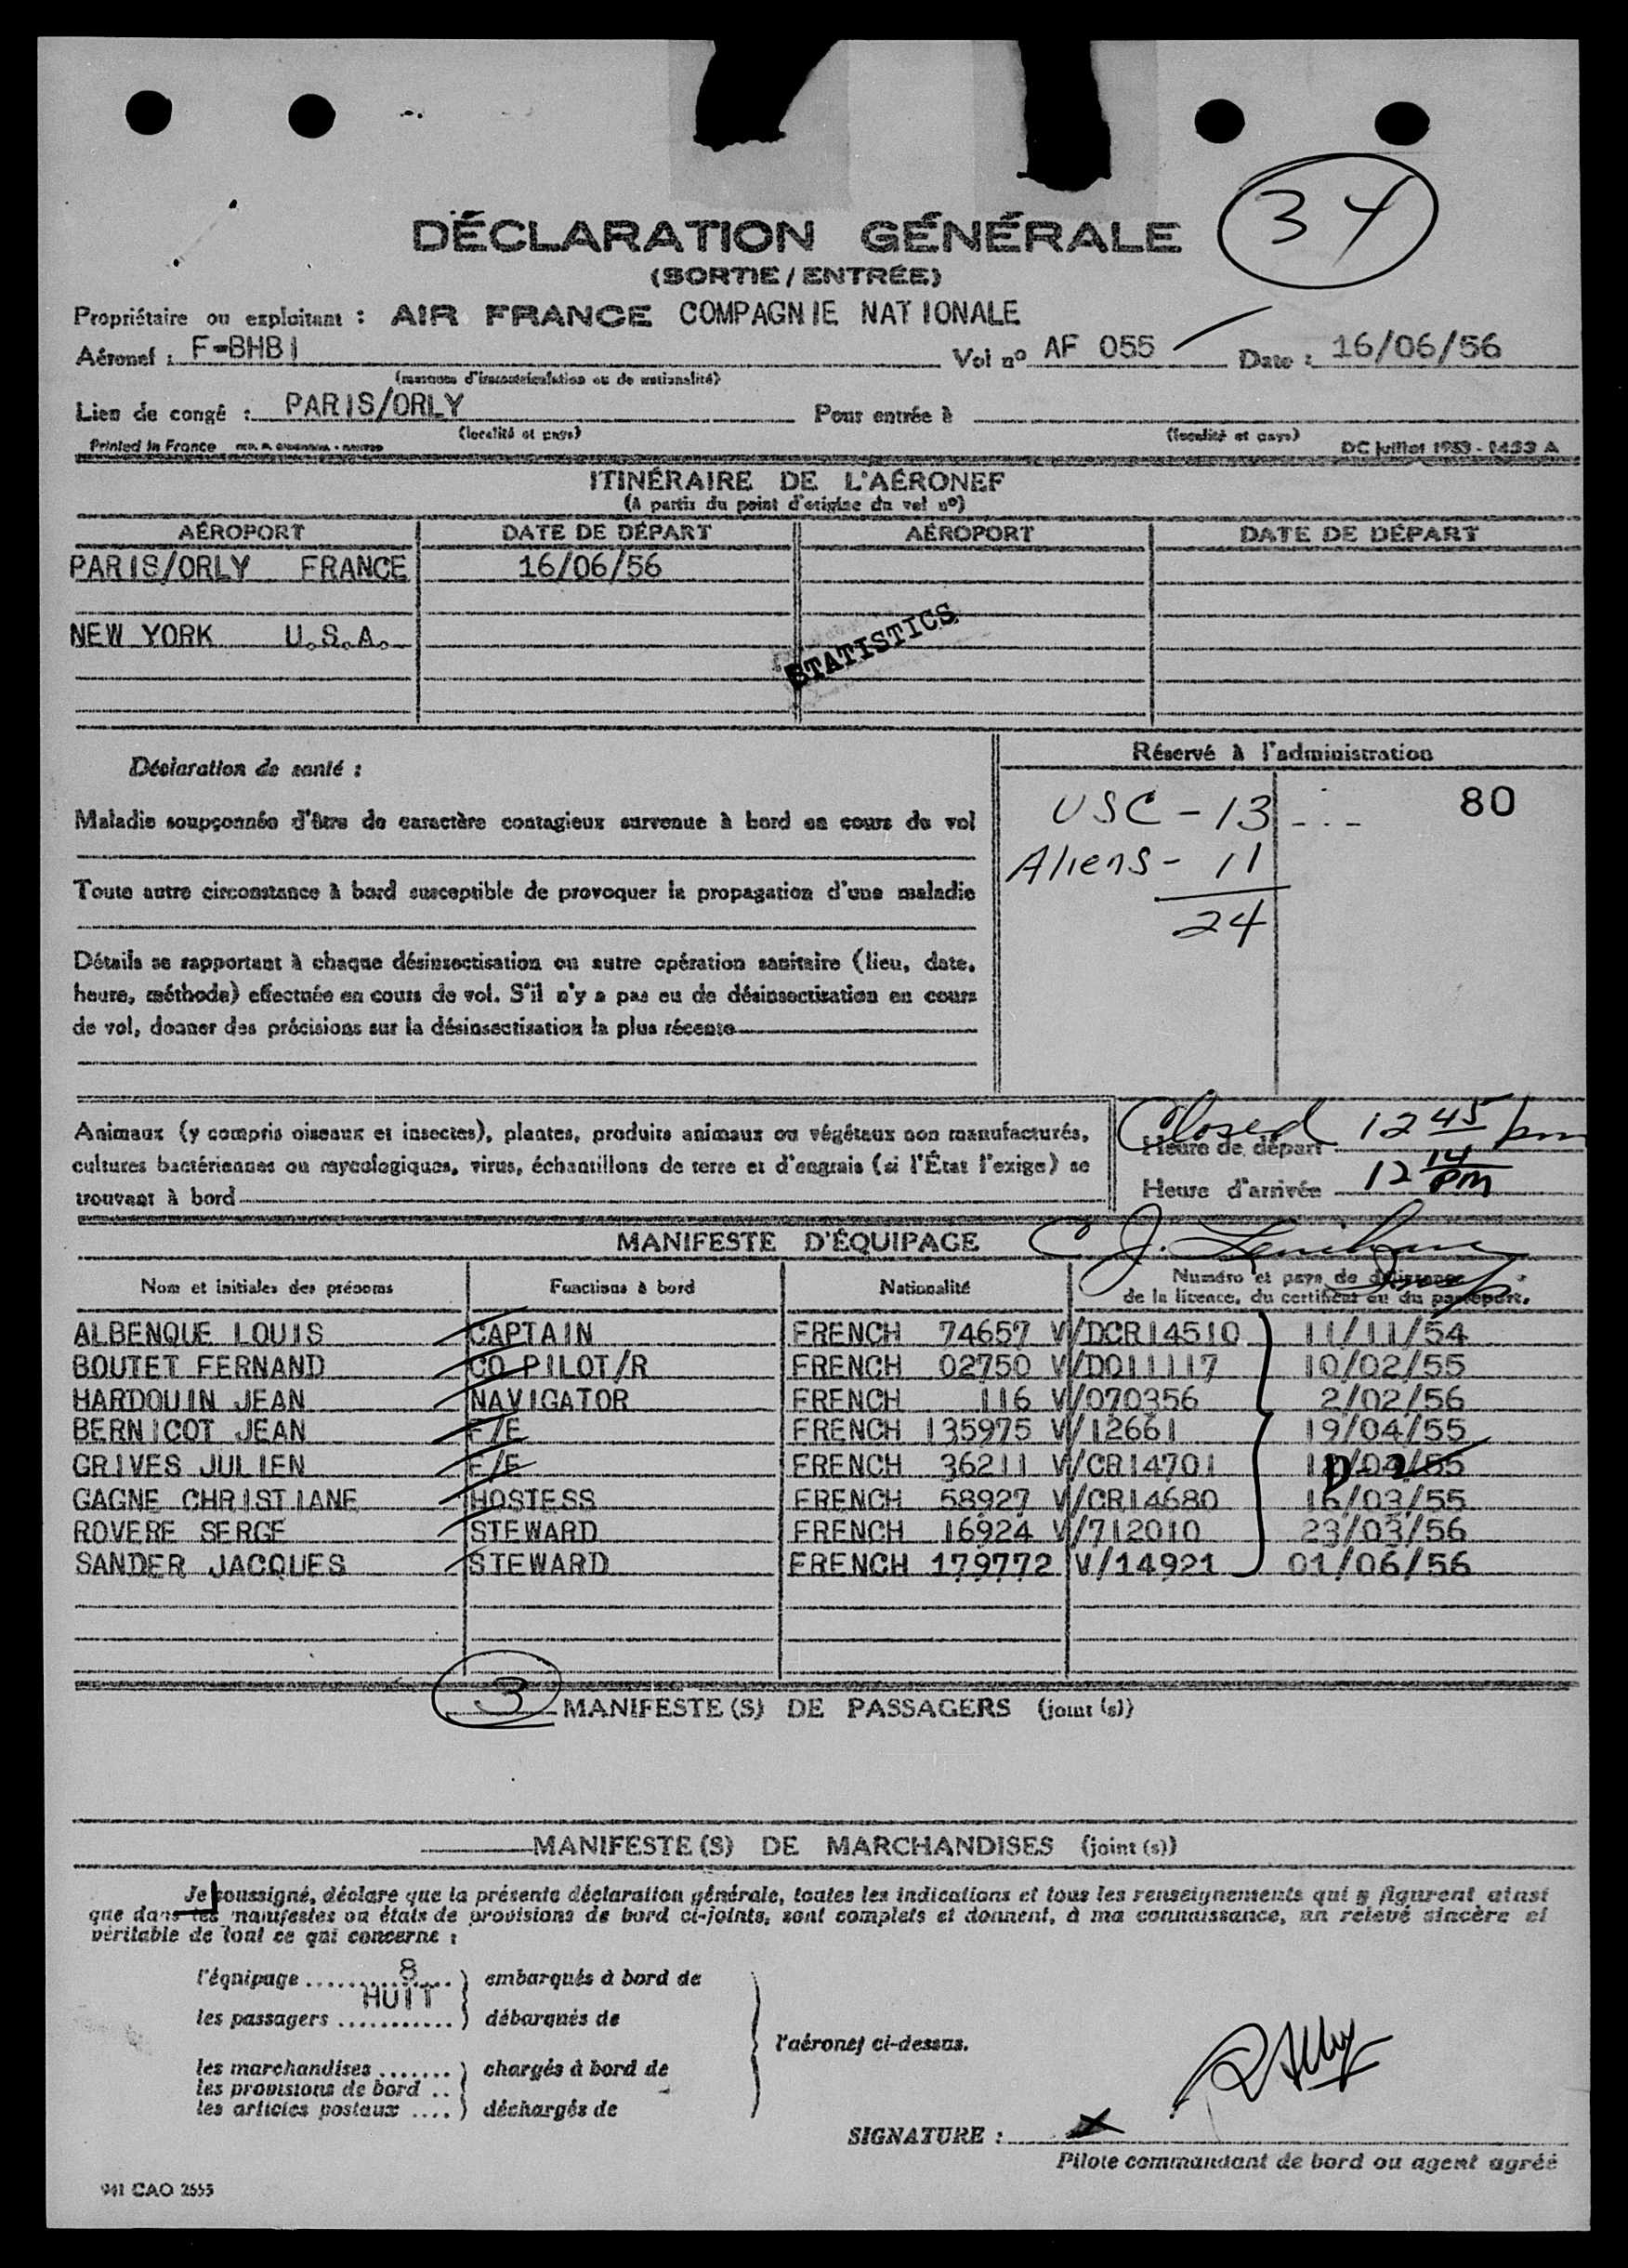 34
DÉCLARATION GÉNÉRALE
(SORTIE / ENTRÉE)
Propriétaire ou exploitant : AIR FRANCE COMPAGNIE NATIONALE
Aéronef : F-BHBI Vol nº AF 055 Date : 16/06/56
(marques d'immatriculation ou de nationalité)
Lieu de congé : PARIS/ORLY Pour entrée à
(localité et pays) (localité et pays)
Printed in France DC juillet 1953 - 2453 A
ITINÉRAIRE DE L'AÉRONEF
(à partir du point d'origine du vol nº)
AÉROPORT DATE DE DÉPART AÉROPORT DATE DE DÉPART
PARIS/ORLY FRANCE 16/06/56
NEW YORK U.S.A.
STATISTICS
Réservé à l'administration
Déclaration de santé :
USC - 13 80
Maladie soupçonnée d'être de caractère contagieux survenue à bord en cours de vol
Aliens - 11
Toute autre circonstance à bord susceptible de provoquer la propagation d'une maladie
24
Détails se rapportant à chaque désinsectisation ou autre opération sanitaire (lieu, date,
heure, méthode) effectuée en cours de vol. S'il n'y a pas eu de désinsectisation en cours
de vol, donner des précisions sur la désinsectisation la plus récente
Closed 12 45 pm
Animaux (y compris oiseaux et insectes), plantes, produits animaux ou végétaux non manufacturés,
Heure de départ
cultures bactériennes ou mycologiques, virus, échantillons de terre et d'engrais (si l'État l'exige) se
trouvant à bord
Heure d'arrivée 12 14 PM
MANIFESTE D'ÉQUIPAGE
Nom et initiales des prénoms Fonctions à bord Nationalité Numéro et pays de délivrance
de la licence, du certificat ou du passeport.
ALBENQUE LOUIS CAPTAIN FRENCH 74657 V/DCR14510 11/11/54
BOUTET FERNAND CO PILOT/R FRENCH 02750 V/DO11117 10/02/55
HARDOUIN JEAN NAVIGATOR FRENCH 116 V/070356 2/02/56
BERNICOT JEAN F/E FRENCH 135975 V/12661 19/04/55
GRIVES JULIEN F/E FRENCH 36211 V/CR14701 D-2
GAGNE CHRISTIANE HOSTESS FRENCH 58927 V/CR14680 16/03/55
ROVERE SERGE STEWARD FRENCH 16924 V/712010 23/03/56
SANDER JACQUES STEWARD FRENCH 179772 V/14921 01/06/56
3 MANIFESTE(S) DE PASSAGERS (joint(s))
MANIFESTE(S) DE MARCHANDISES (joint(s))
Je soussigné, déclare que la présente déclaration générale, toutes les indications et tous les renseignements qui y figurent ainsi
que dans les manifestes ou états de provisions de bord ci-joints, sont complets et donnent, à ma connaissance, un relevé sincère et
véritable de tout ce qui concerne :
l'équipage .......... 8 ) embarqués à bord de
HUIT
les passagers ........... ) débarqués de
l'aéronef ci-dessus.
les marchandises ....... ) chargés à bord de
les provisions de bord ..
les articles postaux .... ) déchargés de
SIGNATURE : x
Pilote commandant de bord ou agent agréé
941 CAO 2555